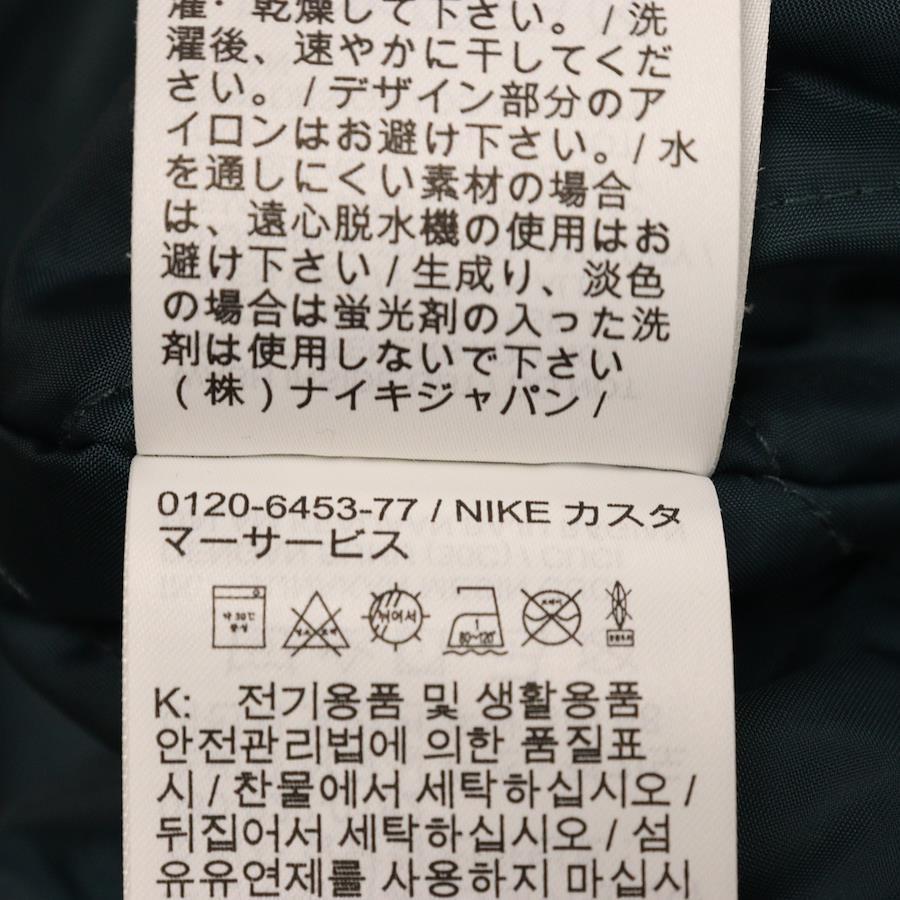 濯・乾燥して下さい。/ 洗
濯後、速やかに干してくだ
さい。 / デザイン部分のア
イロンはお避け下さい。/ 水
を通しにくい素材の場合
は、遠心脱水機の使用はお
避け下さい / 生成り、淡色
の場合は蛍光剤の入った洗
剤は使用しないで下さい
(株)ナイキジャパン /
0120-6453-77 / NIKE カスタ
マーサービス
약 30℃
중성
뉘어서
1
80~120℃
드라이
K: 전기용품 및 생활용품
안전관리법에 의한 품질표
시 / 찬물에서 세탁하십시오 /
뒤집어서 세탁하십시오 / 섬
유유연제를 사용하지 마십시